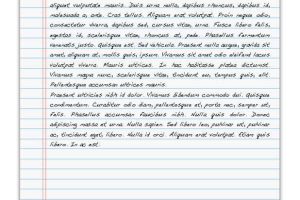 aliquet vulputate mauris. Duis urna nulla, dapibus rhoncus, dapibus id,
malesuada a, ante. Cras tellus. Aliquam erat volutpat. Proin neque odio,
consectetuer viverra, dapibus sed, cursus vitae, urna. Fusce libero felis,
egestas id, scelerisque vitae, rhoncus at, pede. Phasellus fermentum
venenatis justo. Quisque est. Sed vehicula. Praesent nulla augue, gravida sit
amet, aliquam at, mollis quis, ipsum. Vivamus sit amet odio eleifend lacus
volutpat viverra. Mauris ultrices. In hac habitasse platea dictumst.
Vivamus magna nunc, scelerisque vitae, tincidunt eu, tempus quis, elit.
Pellentesque accumsan ultrices mauris.
Praesent ultricies nibh id dolor. Vivamus bibendum commodo dui. Quisque
condimentum. Curabitur odio diam, pellentesque at, porta nec, semper ut,
felis. Phasellus accumsan faucibus nibh. Nulla quis dolor. Donec
adipiscing massa et urna. Nulla sapien. Sed libero leo, pulvinar at, pulvinar
ac, tincidunt eget, libero. Nulla id orci. Aliquam erat volutpat. Etiam quis
libero. In ac est.